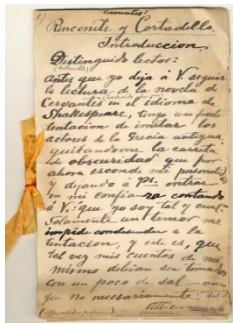 Cervantes:
Rinconete y Cortadillo.
Introduccion.
Distinguido lector:
Antes que yo deje á V. seguir
la lectura de la novela de
Cervantes en el idioma de
Shakespeare, tengo un
tentacion de imitar los
actores de la Grecia antigua
quitandome la careta
de obscuridad que por
ahora esconde mi personali
y dejando á V. entrar
en mi confianza contando
á V. que yo soy tal y cual.
Solamente un temor me
impide condescender a la
tentacion, y este es, que
tal vez mis cuentos de mi
mismo debian ser tomados
con un poco de sal
no necesariamente